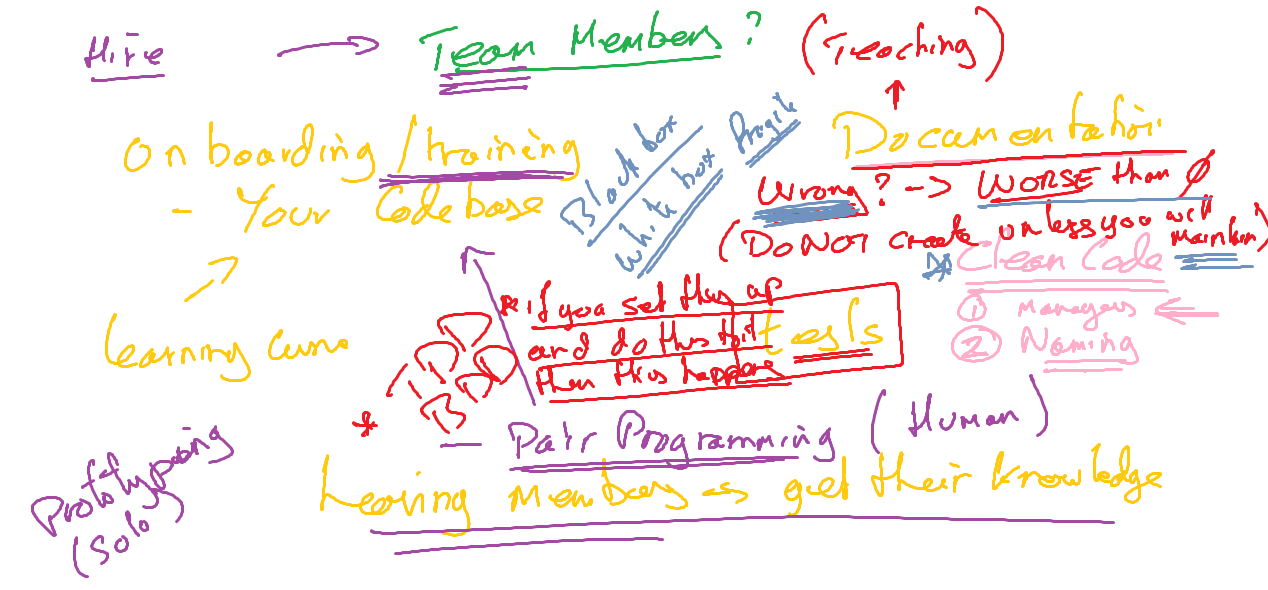 Hire → Team Members? (Teaching)
Onboarding/training
- Your Codebase
Black box
white box
Fragile
Documentation
Wrong? -> WORSE than 0
(DO NOT create unless you will maintain)
Clean Code
① Managers
② Naming
Learning curve
* if you set this up
and do this to it
then this happens
tests
TDD
BDD
*
- Pair Programming (Human)
Prototyping
(Solo)
Leaving Members → get their knowledge